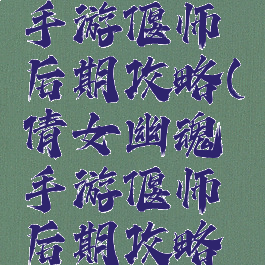 手游偃师
后期攻略(
倩女幽魂
手游偃师
后期攻略